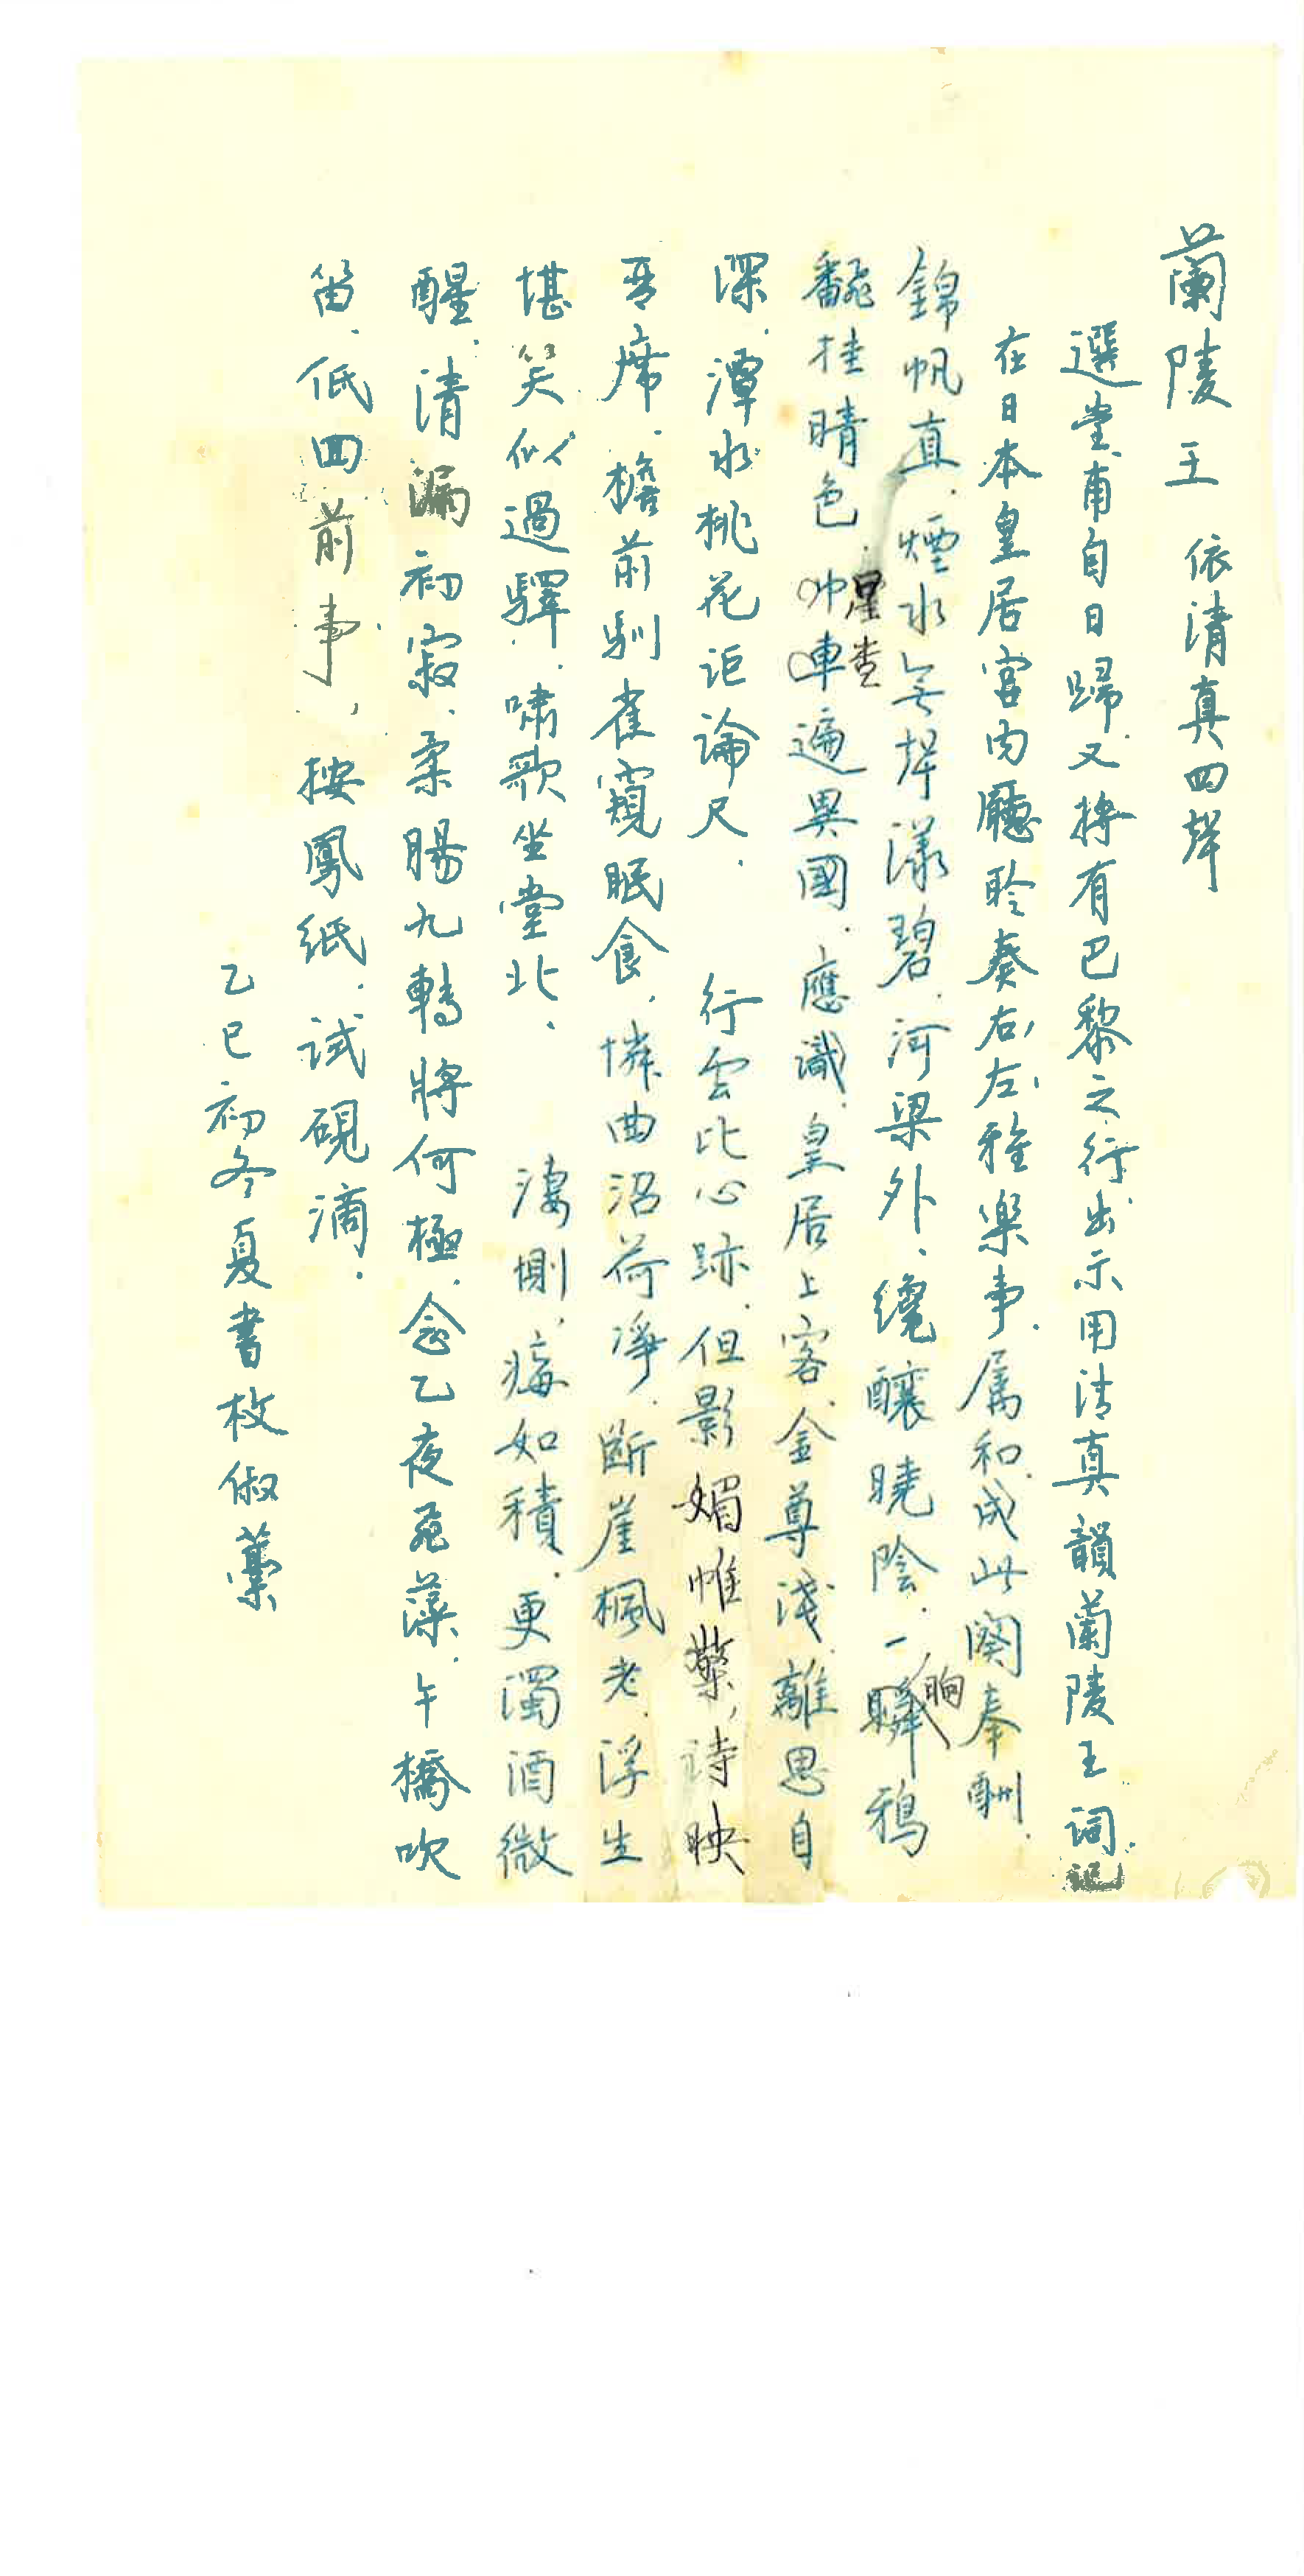 蘭陵王 依清真四聲
選堂甫自日歸.又將有巴黎之行.出示用清真韻蘭陵王詞.記
在日本皇居宮内廳聆奏右、左、雅樂事.屬和.成此闋奉酬.
錦帆直.煙水無聲漾碧.河梁外、纔釀曉陰.一瞬眴鴉
翻挂晴色.帅車星槎遍異國.應識.皇居上客.金尊淺、離思自
深.潭水桃花詎論尺. 行雲比心跡.但影媚帷檠,詩映
琴席.檐前馴雀窺眠食.憐曲沼荷凈.斷崖楓老.浮生
堪笑似過驛.嘯歌坐堂北. 淒惻.痗如積.更濁酒微
醒.清漏初寂.柔腸九轉將何極.念乙夜苑藻.午橋吹
笛.低回前事,按鳳紙.試硯滴.
乙巳初冬夏書枚俶藁